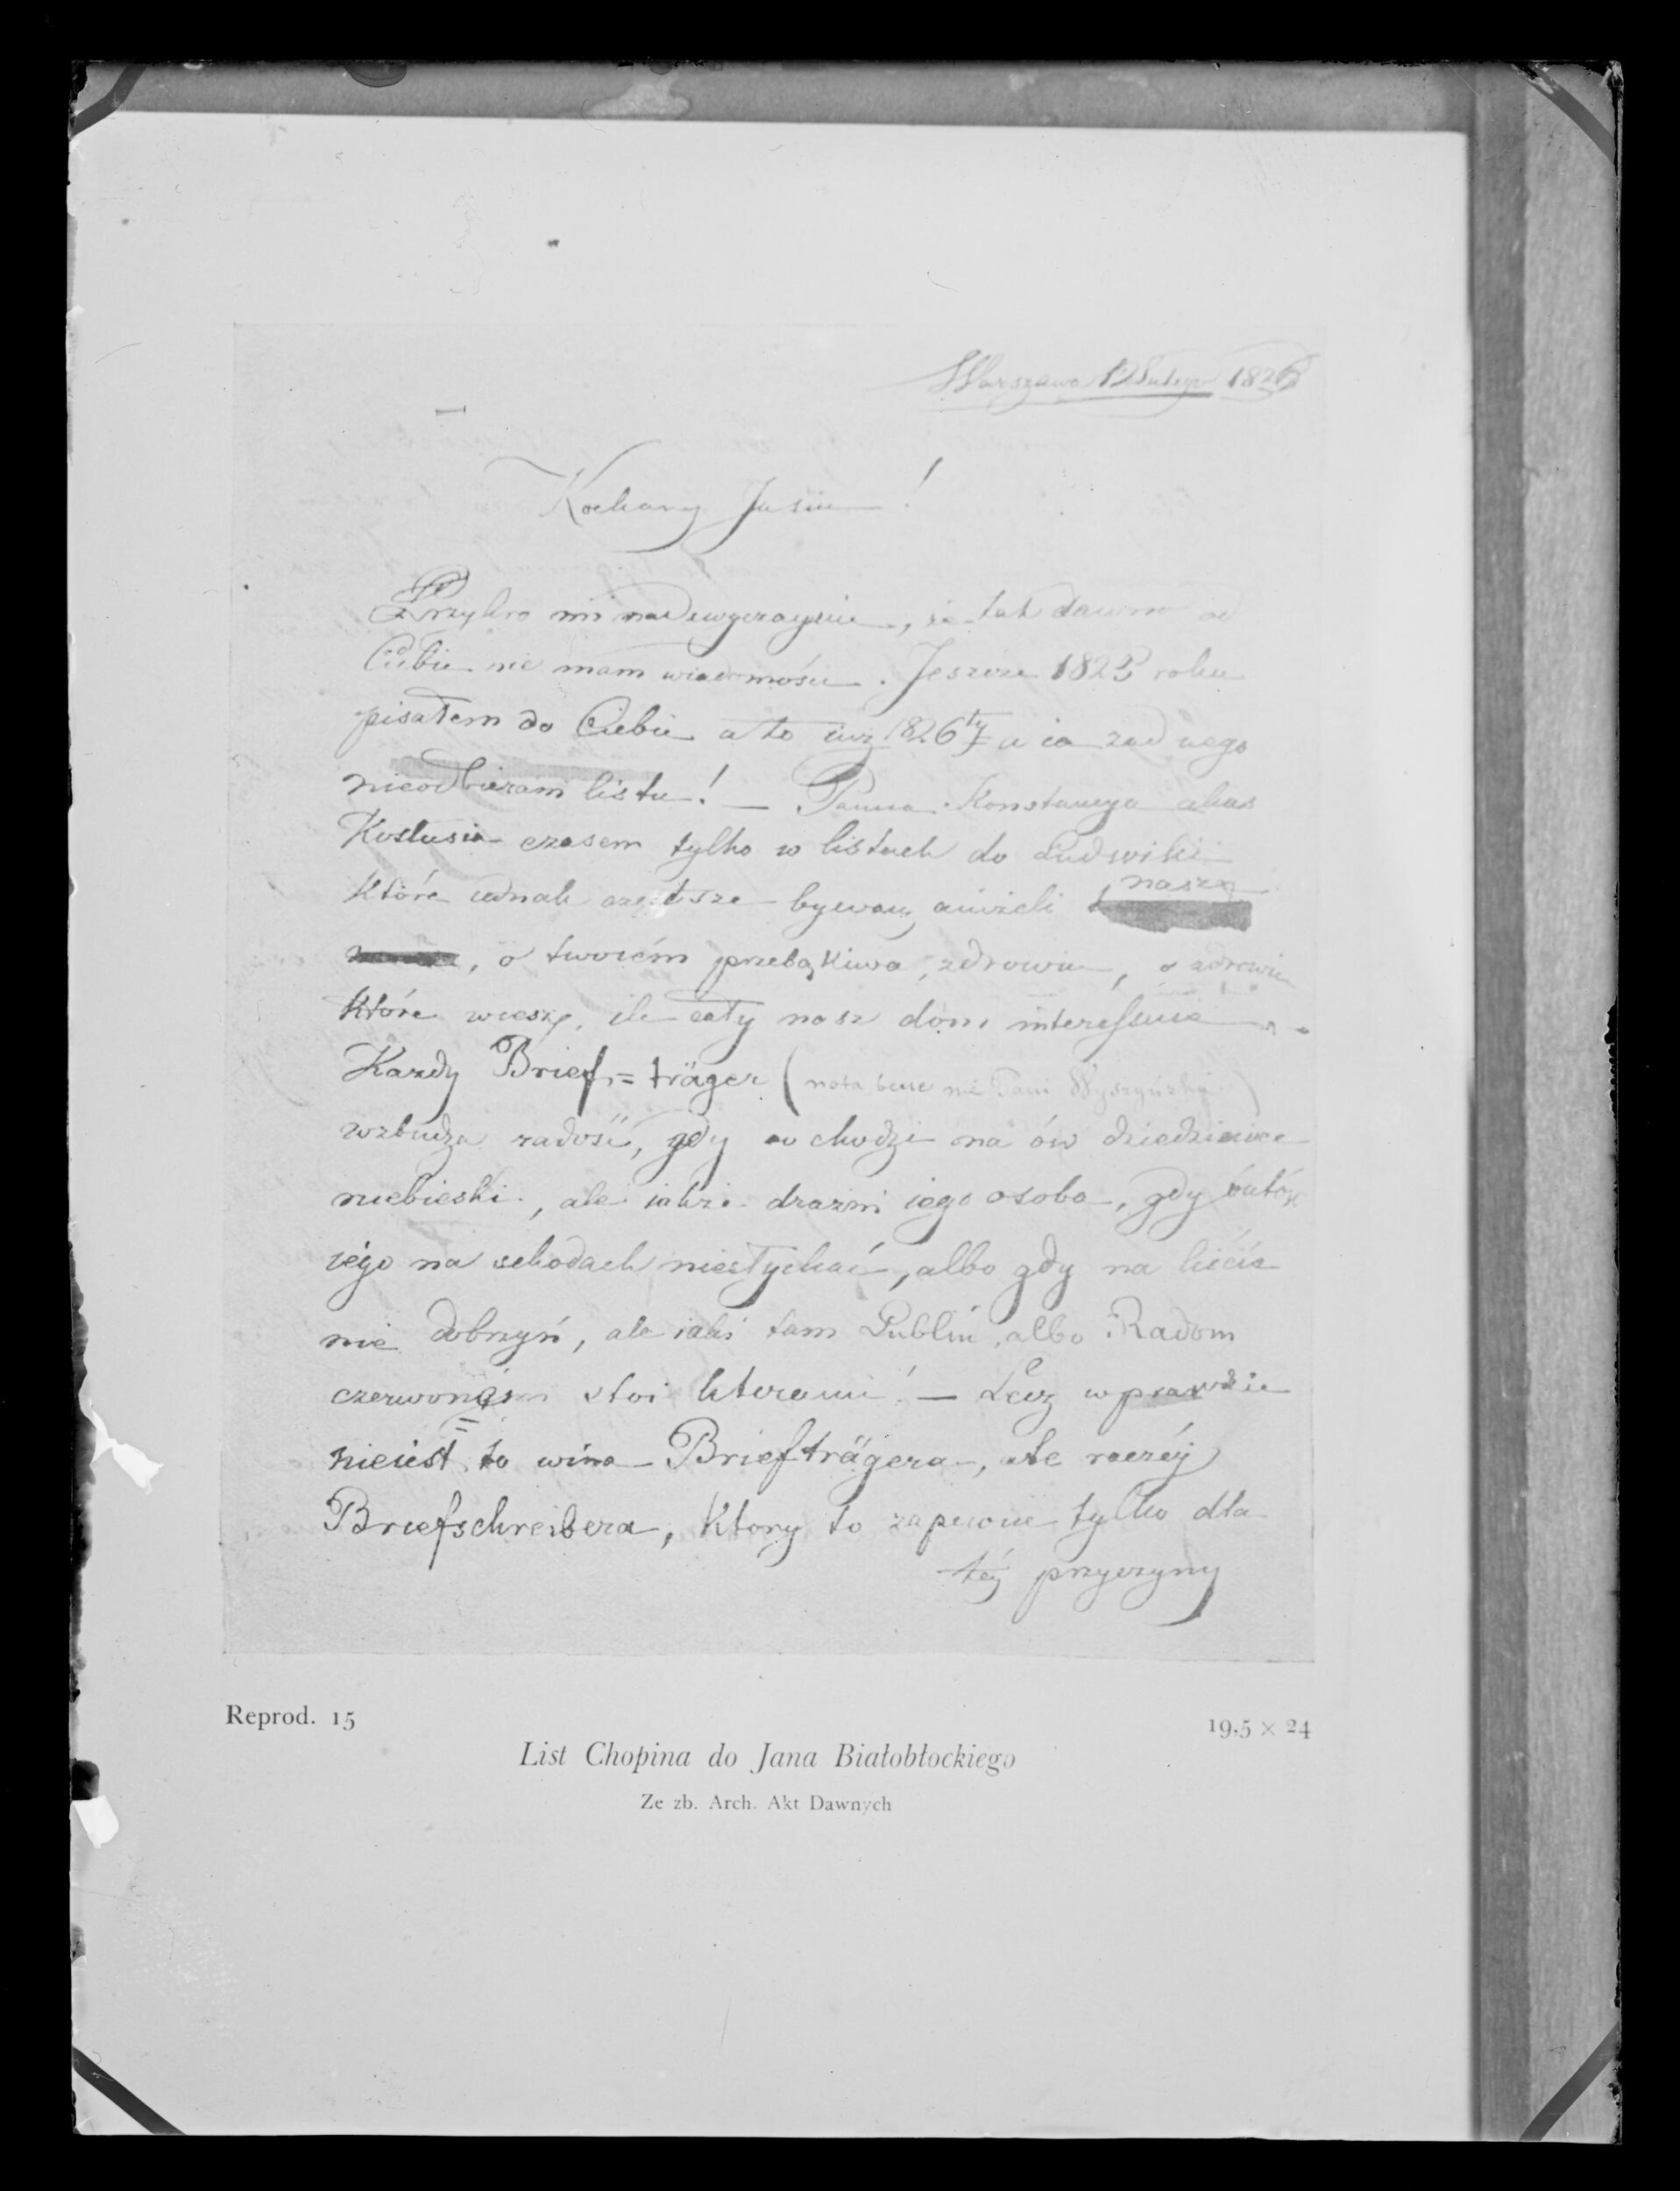 Warszawa 12 Lutego 1826
Kochany Jasiu !
Przykro mi nadzwyczaynie, że tak dawno od
Ciebie nie mam wiadomości. Jeszcze 1825 roku
pisałem do Ciebie a to iuż 1826ty a ia żadnego
nieodbieram listu! — Panna Konstancya alias
Kostusia czasem tylko w listach do Ludwiki
które iednak częstsze bywaią aniżeli naszę
, o twoiém przebąkiwa zdrowiu, o zdrowiu
które wiesz, ile cały nasz dom interessuie
Każdy Brief=träger (nota bene nie Pani Wyszyńska)
wzbudza radość, gdy wchodzi na ów dziedziniec
niebieski, ale iakże drażni iego osoba, gdy bótów
iégo na schodach niesłychać, albo gdy na liście
nie Dobrzyń, ale iakiś tam Lublin, albo Radom
czerwonemi stoi literami! — Lecz wprawdzie
nieiest to wina Briefträgera, ale raczéj
Briefschreibera, który to zapewne tylko dla
téj przyczyny
Reprod. 15
19,5 × 24
List Chopina do Jana Białobłockiego
Ze zb. Arch. Akt Dawnych